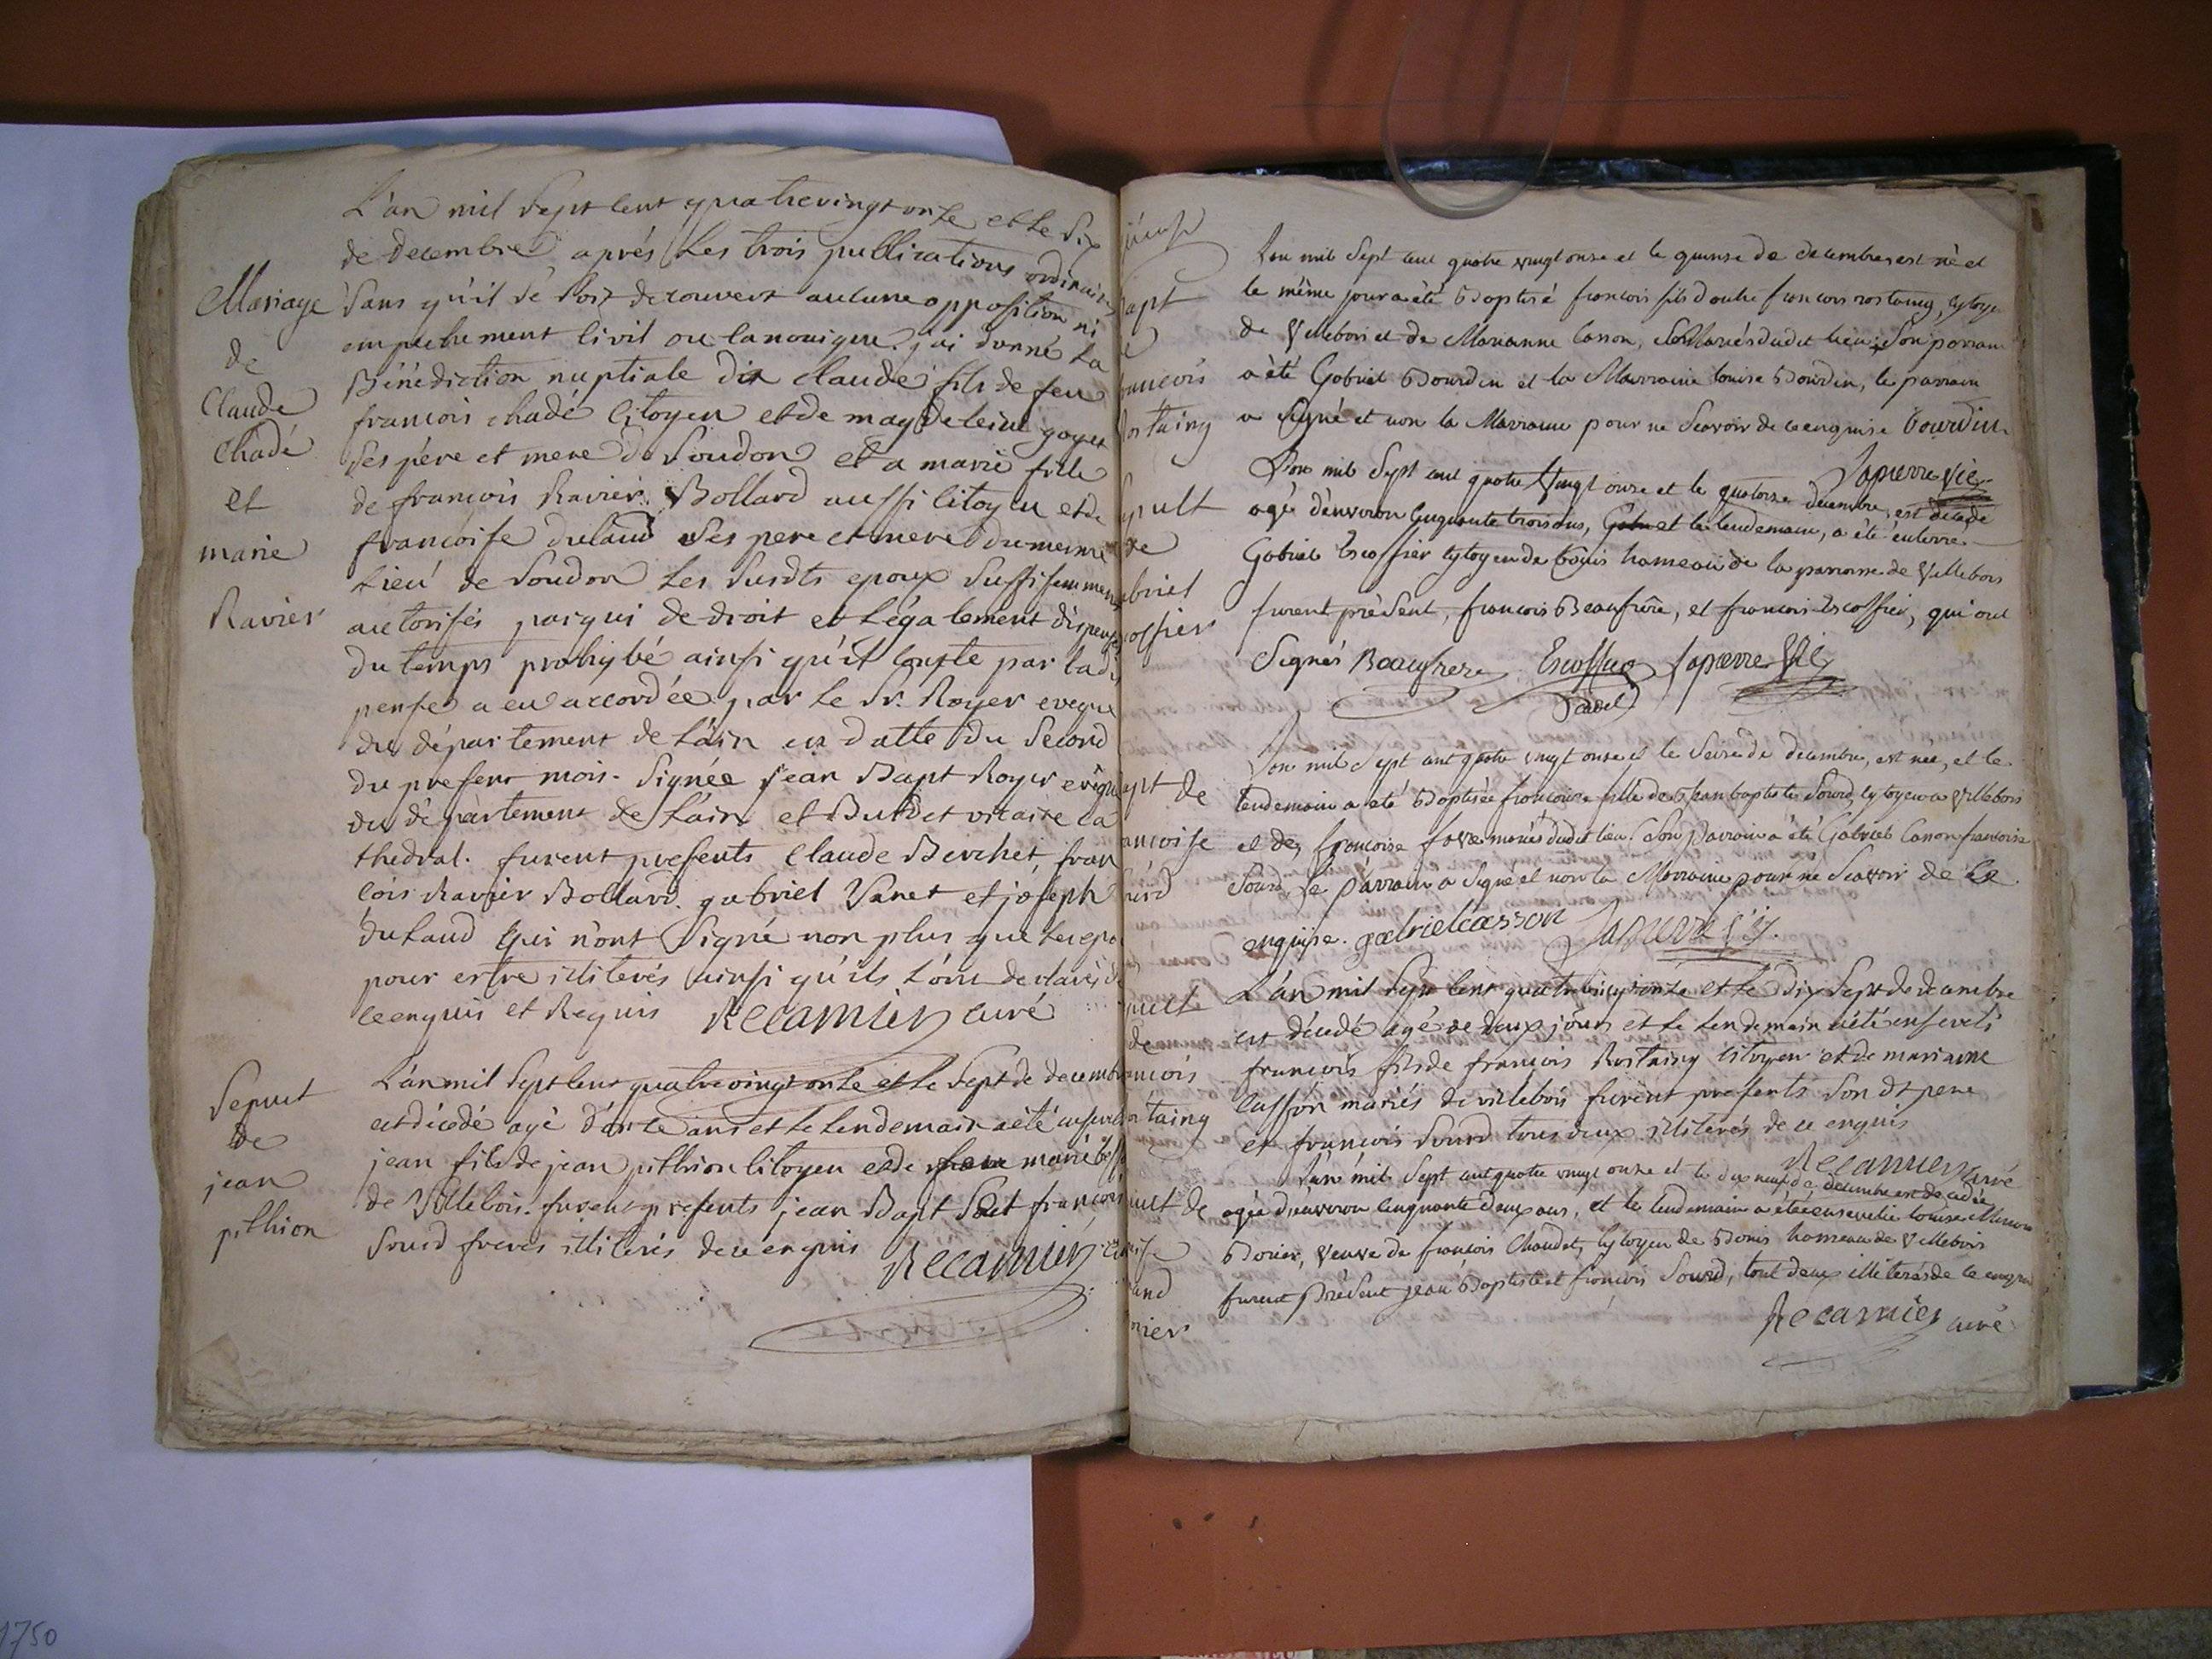 L'an mil sept cent quatrevingt onze et le six
de decembre après les trois publications ordinaires
sans qu'il se soit decouvert aucune opposition ni
empechement civil ou canonique. j'ai donné la
Bénédiction nuptiale à claude fils de feu
francois chadé citoyen et de magdeleine goyet
ses père et mere de Soudon et a marie fille
de françois Ravier Bollard aussi citoyen et de
francoise dulaud ses pere et mere du meme
lieu de Soudon les susdts epoux suffisamment
autorisés par qui de droit et légalement dispensés
du temps prohybé ainsi qu'il conste par la dis
pense a eu accordée par le Sr. Royer eveque
du département de l'ain en datte du second
du present mois. Signée jean Bapt Royer evêque
du département de l'ain et Burdet vicaire ca
thedral. furent presents claude Berchet, fran
cois Ravier Bollard. gabriel Vanet et joseph
dulaud qui n'ont signé non plus que les epo
pour estre illiterés ainsi qu'ils l'ont declarés de
ce enquis et Requis Recamier curé
Mariage
de
Claude
Chadé
et
marie
Ravier
L'an mil sept cent quatrevingt onze et le sept de decemb
est décédé agé d'onze ans et le lendemain a été enseveli
jean fils de jean pithion citoyen et de marie
de Villebois. furent presents jean Bapt et francois
Sourd freres illiterés de ce enquis Recamier
Sepult
de
jean
pithion
L'an mil sept cent quatre vingt onse et le quinse de decembre est né et
le même jour a été Baptisé francois fils d'autre francois rostaing, cytoye
de Villebois et de Marianne Casson, Mariés dudit lieu. Son parrain
a été Gabriel Bourdin et la Marraine louise Bourdin, le parrain
a signé et non la Marraine pour ne Scavoir de ce enquise Bourdin
Lapierre Vic.
bapt
de
francois
rostaing
L'an mil sept cent quatre vingt onse et le quatorse decembre, est decedé
agé d'environ Cinquante trois ans, et le lendemain, a été enterré
Gabriel Escoffier cytoyen de Bouis hameau de la paroisse de Villebois
furent présent, francois Beaufrère, et francois Escoffier, qui ont
Signés Beaufrere Escoffier Lapierre Vic
sepult
de
gabriel
escoffier
L'an mil sept cent quatre vingt onse et le Seise de decembre, est née, et le
lendemain a été Baptisée francoise fille de Jean baptiste Sourd, cytoyen de Villebois
et de francoise favre mariés dudit lieu. Son Parrain a été Gabriel Casson francoise
Sourd, le parrain a signé et non la Marraine pour ne Scavoir de ce
enquise. gabriel casson Lapierre Vic.
bapt de
francoise
sourd
L'an mil sept cent quatrevingt onze et le dix sept de decembre
est décédé agé de deux jours et le lendemain a été enseveli
francois fils de francois Rostaing citoyen et de mariane
casson mariés de villebois furent presents son dt pere
et francois Sourd tous deux illiterés de ce enquis
Recamier curé
sepult
de
francois
rostaing
L'an mil sept cent quatre vingt onse et le dix neuf de decembre est decedée
agée d'environ cinquante deux ans, et le lendemain a été ensevelie louise
veuve de francois Chaudet, cytoyen de Bouis hameau de Villebois
furent Présent jean Baptiste et francois Sourd, tout deux illiterés de ce enquis
Recamier curé
1750